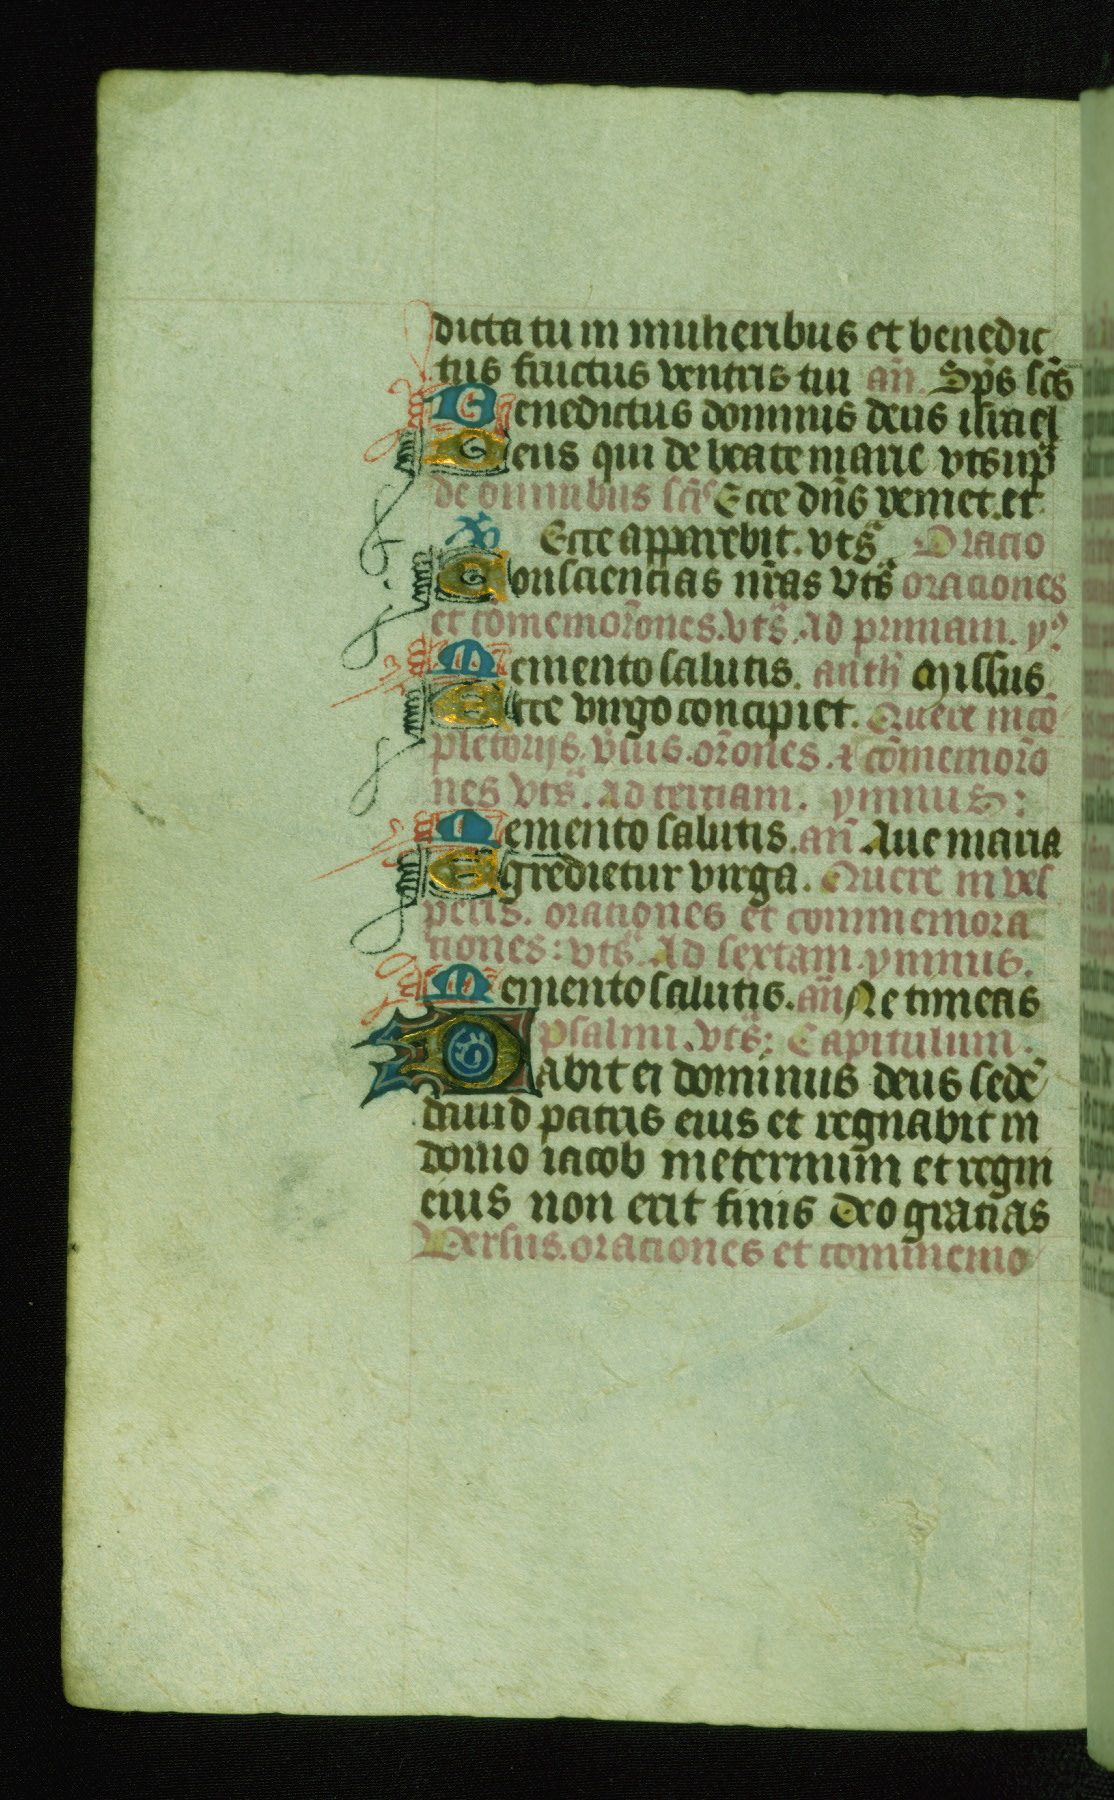 dicta tu in mulieribus et benedic
tus fructus ventris tui an̄. Sp̄s sc̄s
Benedictus dominus deus israel
Deus qui de beate marie vtsup̄
de omnibus sc̄is Ecce dn̄s veniet. et
Ecce apparebit. vts̄ Oracio
Consciencias nr̄as vts̄ oraciones
et cōmemorōnes. vts̄. Ad primam. ym̄
Memento salutis. anth̄ Missus
Ecce virgo concipiet. Quere in cō
pletorijs. v̄sus. orōnes. et cōmemorō
nes vts̄. Ad terciam. ymnus:
Memento salutis. an̄ Aue maria
Egredietur virga. Quere in ves
peris. oraciones et commemora
tiones: vts̄ Ad sextam. ymnus.
Memento salutis. an̄ Ne timeas
psalmi. vts̄: Capitulum.
Dabit ei dominus deus sedē
dauid patris eius et regnabit in
domo iacob in eternum et regni
eius non erit finis Deo gracias
Versus. oraciones et commemo